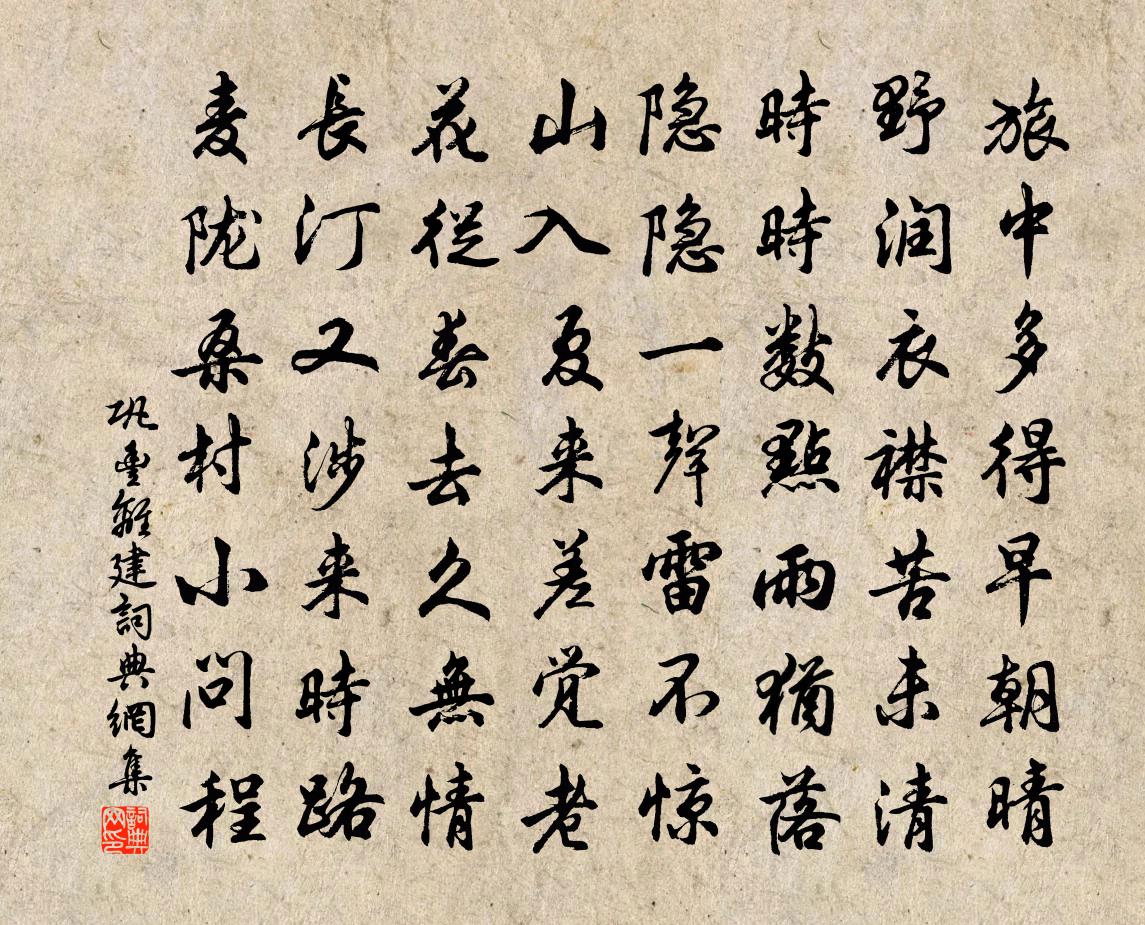 旅中多得早朝晴
野润衣襟苦未清
時時數點雨猶落
隐隐一聲雷不惊
山入夏来差觉老
花從春去久無情
長汀又涉来時路
麦陇桑村小问程
巩豐離建詞典網集
詞典网印